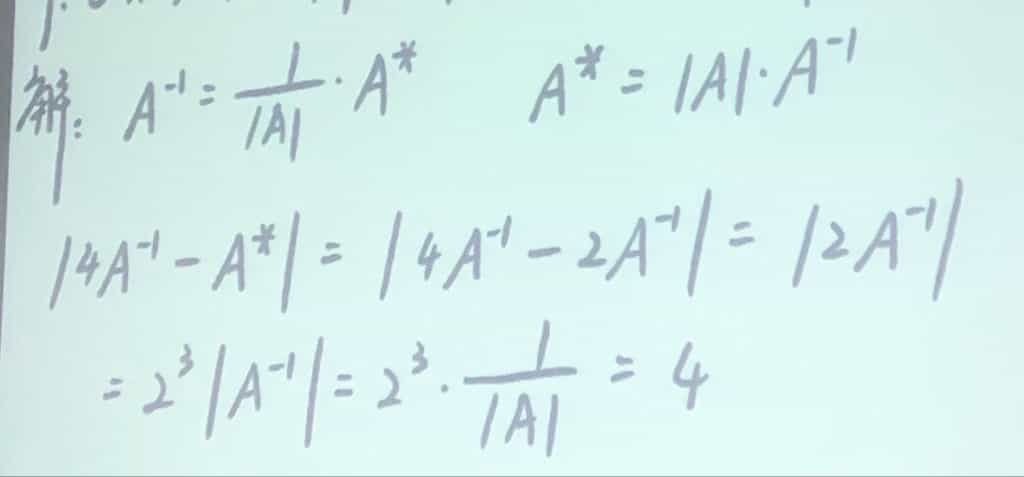 解: A⁻¹ = 1/|A| · A* A* = |A| · A⁻¹
|4A⁻¹ - A*| = |4A⁻¹ - 2A⁻¹| = |2A⁻¹|
= 2³|A⁻¹| = 2³ · 1/|A| = 4